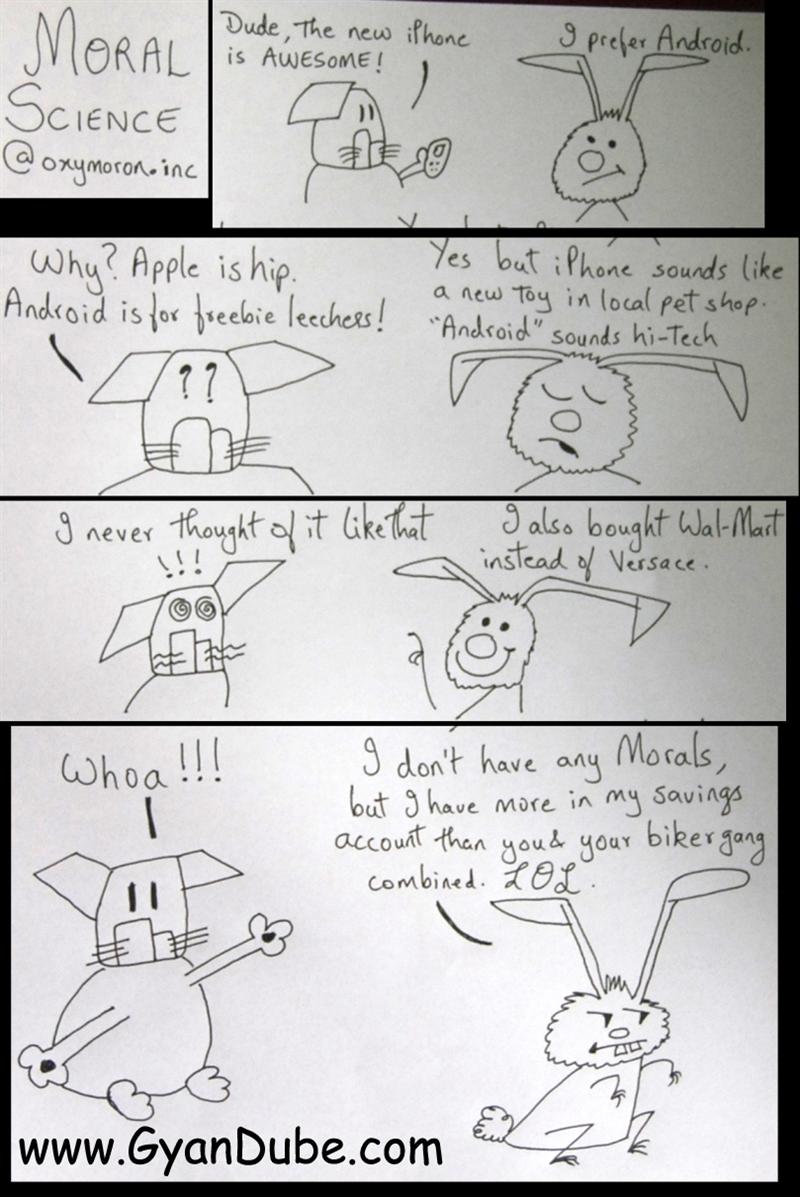 MORAL
SCIENCE
@oxymoron.inc
Dude, The new iPhone
is AWESOME!
I prefer Android.
Why? Apple is hip.
Android is for freebie leechers!
Yes but iPhone sounds like
a new Toy in local pet shop.
"Android" sounds hi-Tech
??
I never thought of it like that
!!!
I also bought Wal-Mart
instead of Versace.
Whoa!!!
I don't have any Morals,
but I have more in my savings
account than you & your biker gang
combined. LOL.
www.GyanDube.com